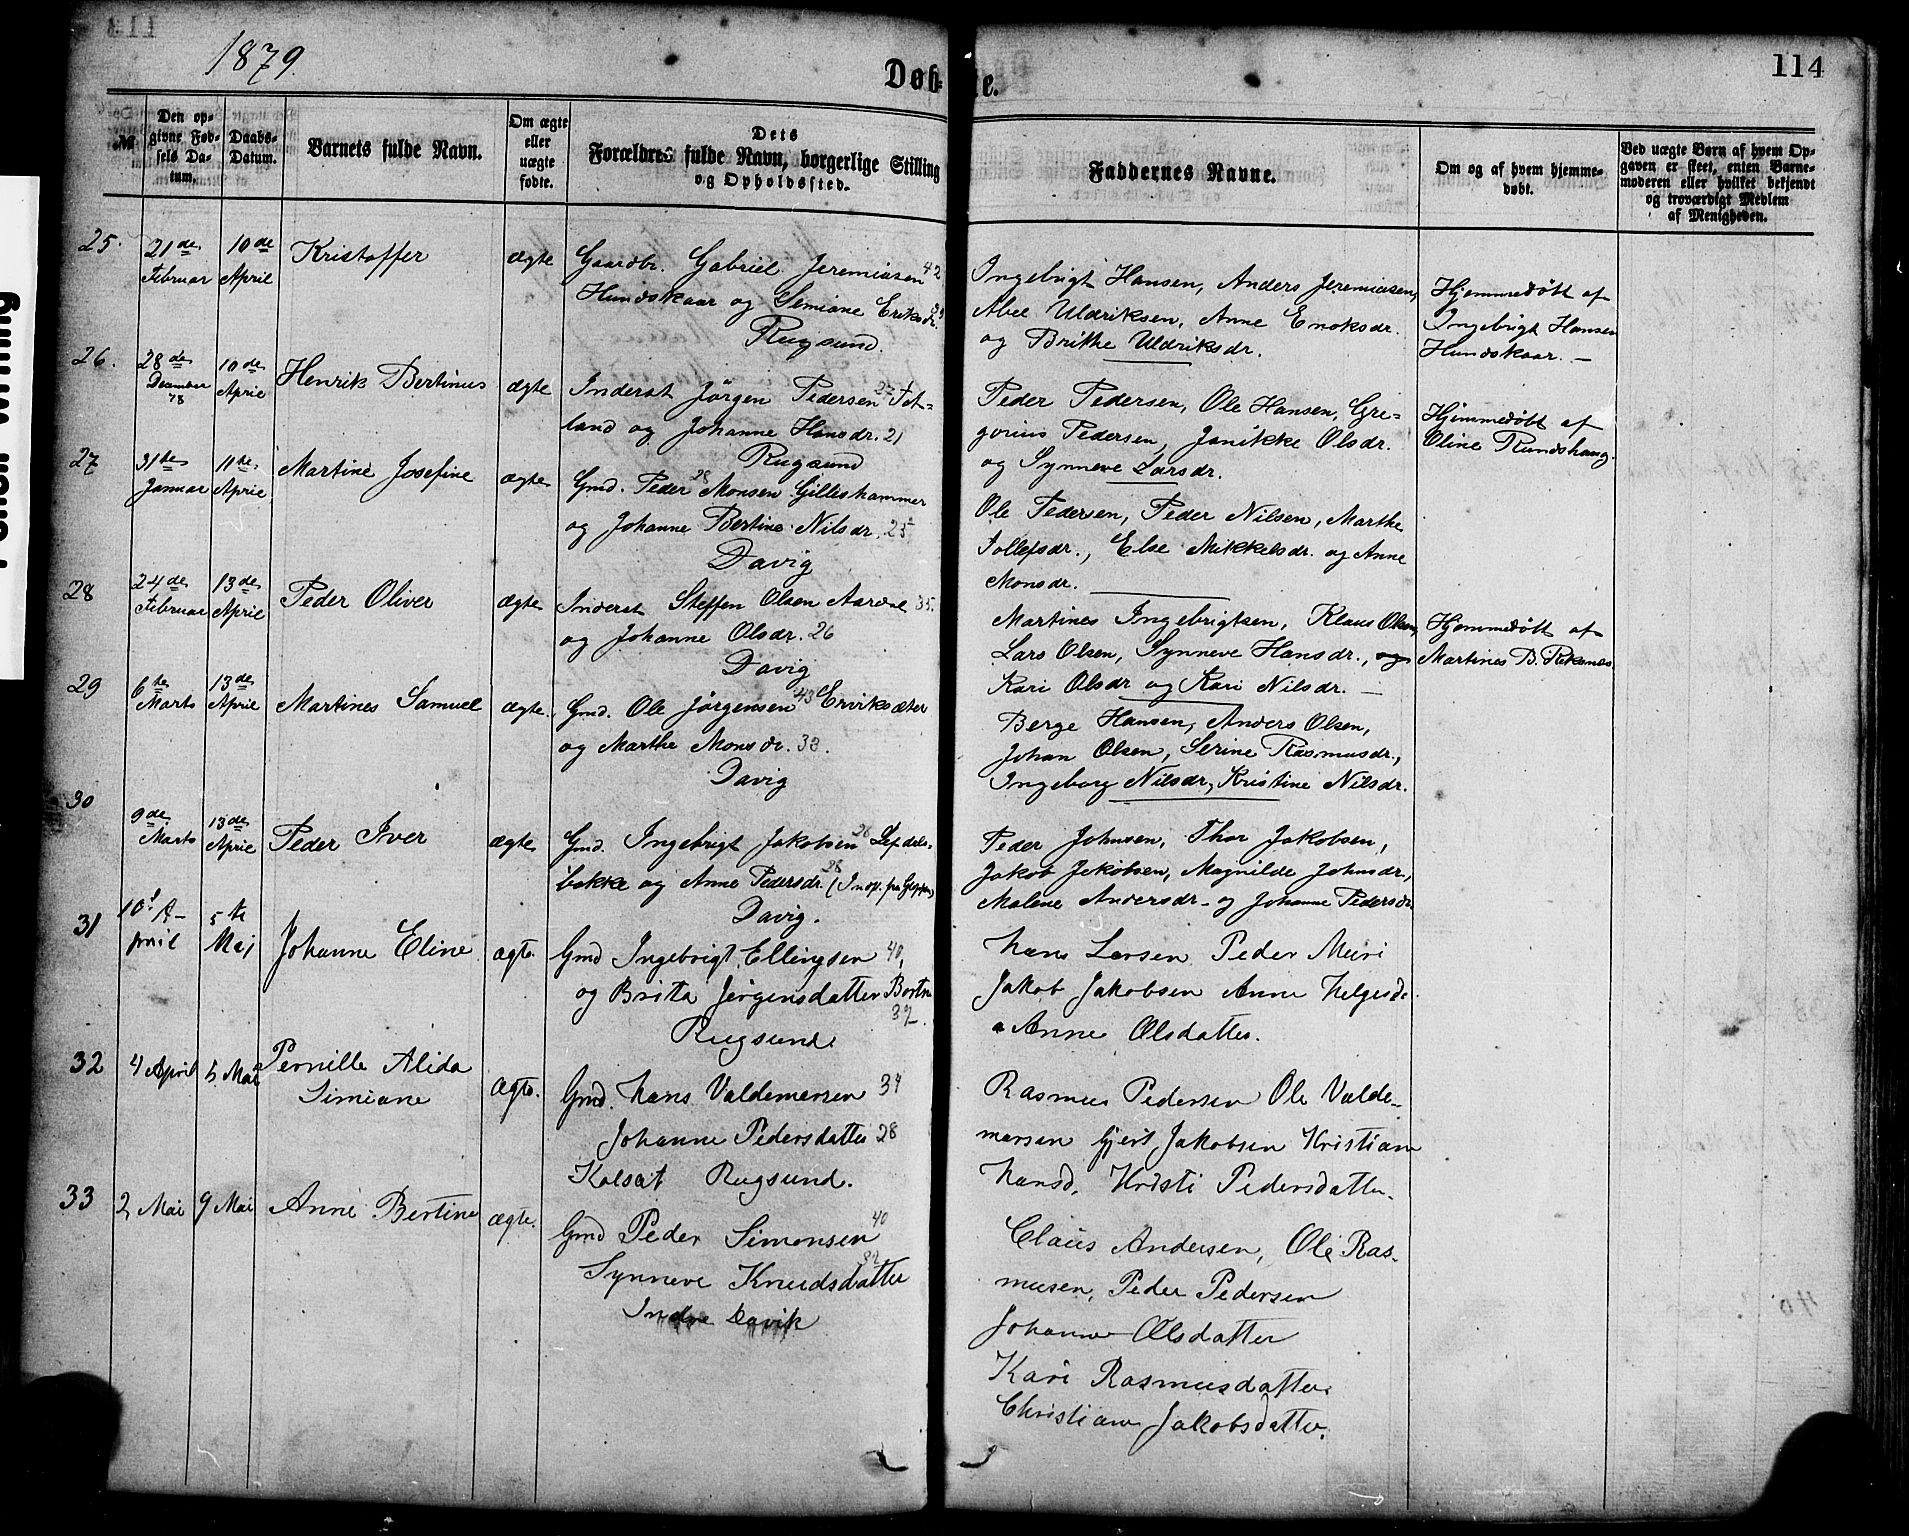 1879
Døb-
te.
114
№
Den op-
givne Fød-
sels Da-
tum.
Daabs-
Datum.
Barnets fulde Navn.
Om ægte
eller
uægte
fødte.
Dets
Forældres fulde Navn, borgerlige Stilling
og Opholdssted.
Faddernes Navne.
Om og af hvem hjemme-
døbt.
Ved uægte Børn af hvem Op-
gaven er skeet, enten Barne-
moderen eller hvilket bekjendt
og troværdigt Medlem
af Menigheden.
25.
21de
Februar
10de
April
Kristoffer
ægte
Gaardbr. Gabriel Jeremiasen 42
Hundskaar og Semiane Eriksdr.
Rugsund.
Ingebrigt Hansen, Anders Jeremiasen,
Abel Uldriksen, Anne Enoksdr.
og Brithe Uldriksdr.
Hjemmedøbt af
Ingebrigt Hansen
Hundskaar. —
26.
28de
December
78
10de
April
Henrik Bertinus
ægte
Inderst Jörgen Pedersen 27 Tot-
land og Johanne Hansdr. 21
Rugsund
Peder Pedersen, Ole Hansen, Gre-
gorius Pedersen, Janikke Olsdr.
og Synneve Larsdr.
Hjemmedøbt af
Oline Rundshaug.
27
31te
Januar
11te
April
Martine Josefine
ægte
Gmd. Peder 28 Monsen Gilleshammer
og Johanne Bertine Nilsdr. 25
Davig
Ole Pedersen, Peder Nilsen, Marthe
Tollefsdr., Else Mikkelsdr. og Anne
Monsdr.
28
24de
Februar
13de
April
Peder Oliver
ægte
Inderst Steffen Olsen Aardal 35.
og Johanne Olsdr. 26
Davig
Martines Ingebrigtsen, Klaus Olsen,
Lars Olsen, Synneve Hansdr., og
Kari Olsdr og Kari Nilsdr. —
Hjemmedøbt af
Martines B. Reksnes
29
6te
Marts
13de
April
Martines Samuel
ægte.
Gmd. Ole Jørgensen 43 Erviksæter
og Marthe Monsdr. 33.
Davig
Berge Hansen, Anders Olsen,
Johan Olsen, Serine Rasmusdr.,
Ingeborg Nilsdr, Kristine Nilsdr.
30
9de
Marts
13de
April
Peder Iver
ægte
Gmd. Ingebrigt Jakobsen 28 Lefdals-
bakke og Anne Pedersdr. 28
Davig.
Peder Johnsen, Thor Jakobsen,
Jakob Jakobsen, Magnilde Johnsdr,
Malene Andersdr. og Johanne Pedersdr
31
10. A-
pril
5te
Maj
Johanne Eline
ægte.
Gmd Ingebrigt Ellingsen 40,
og Brita Jørgensdatter Bortn
32.
Rugsund
Hans Larsen Peder Muri
Jakob Jakobsen Anne Helgesd.
a Anne Olsdatter.
32
4 April
5. Mai
Pernille Alida
Simiane
Ægte.
Gmd. Hans Valdemarsen 34
Johanne Pedersdatter 28
Kolset Rugsund.
Rasmus Pedersen Ole Valde-
marsen Gjert Jakobsen Kristiane
Hansd. Kristi Pedersdatter.
33
2 Mai
9 Mai
Anne Bertine
ægte.
Gmd Peder Simonsen 40
Synneve Knudsdatter 32
Indre Davik
Claus Andersen, Ole Ras-
musen, Peder Pedersen
Johanne Olsdatter
Kari Rasmusdatter
Christiane Jakobsdatter.